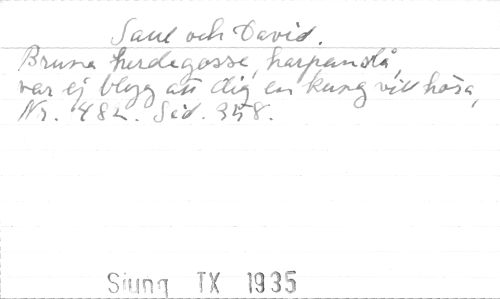 Saul och David.
Bruna herdegosse, harpan slå,
var ej blyg att dig en kung vill höra,
Nr. 482. Sid. 358.
Sjung TX 1935